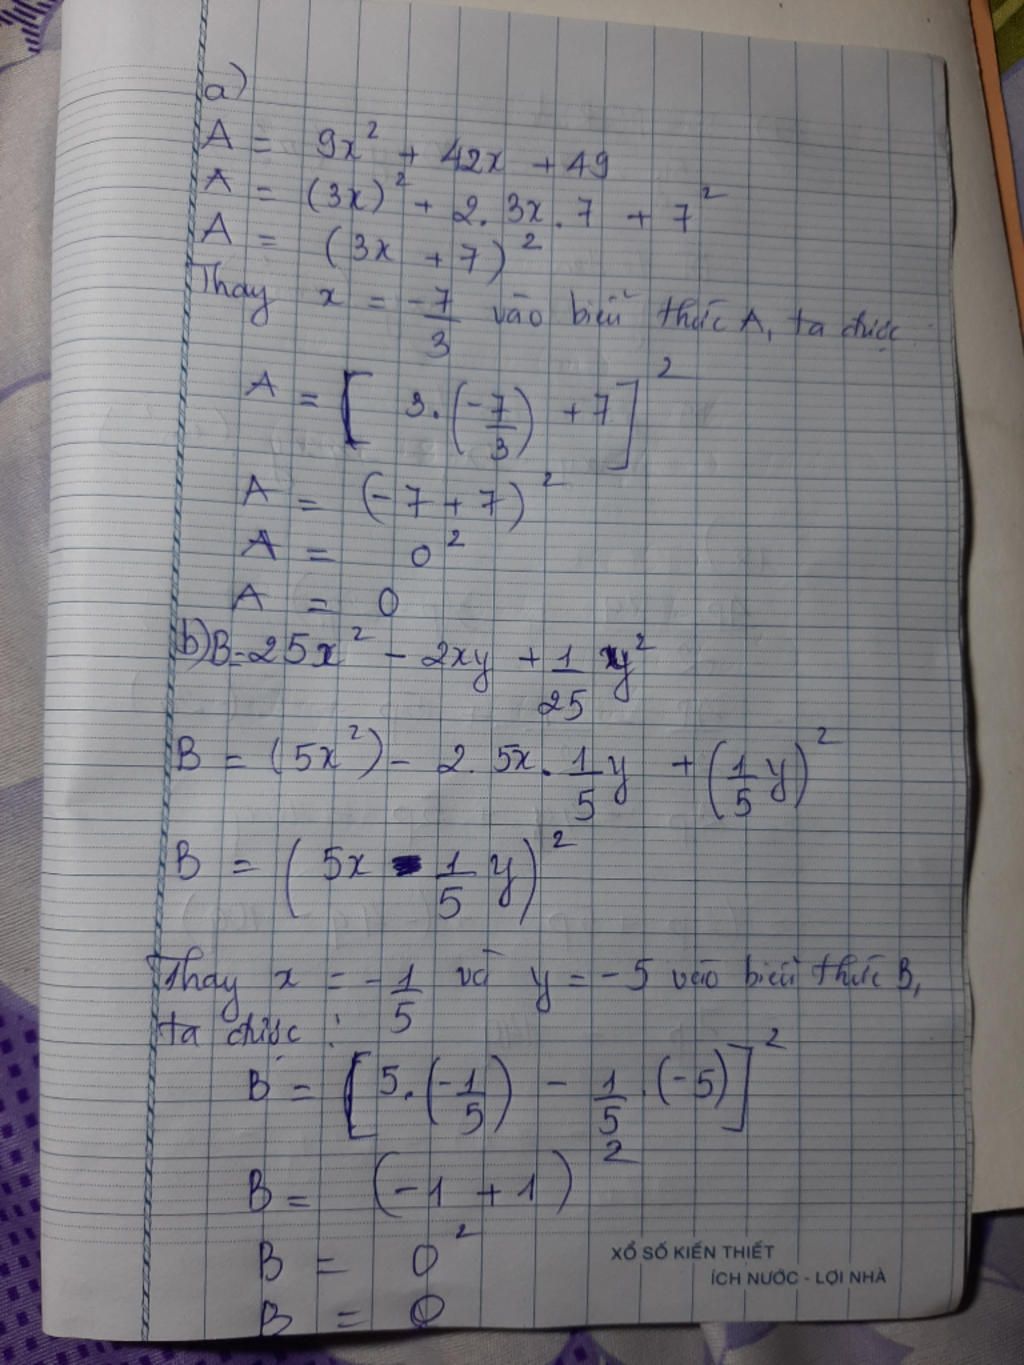 a)
A = 9x² + 42x + 49
A = (3x)² + 2. 3x. 7 + 7²
A = (3x + 7)²
Thay x = -7/3 vào biểu thức A, ta được
A = [ 3. (-7/3) + 7 ]²
A = (-7 + 7)²
A = 0²
A = 0
b) B = 25x² - 2xy + 1/25 y²
B = (5x²) - 2. 5x. 1/5 y + (1/5 y)²
B = (5x - 1/5 y)²
Thay x = -1/5 và y = -5 vào biểu thức B,
ta được :
B = [5. (-1/5) - 1/5 . (-5)]²
B = (-1 + 1)²
B = 0²
B = 0
XỔ SỐ KIẾN THIẾT
ÍCH NƯỚC - LỢI NHÀ